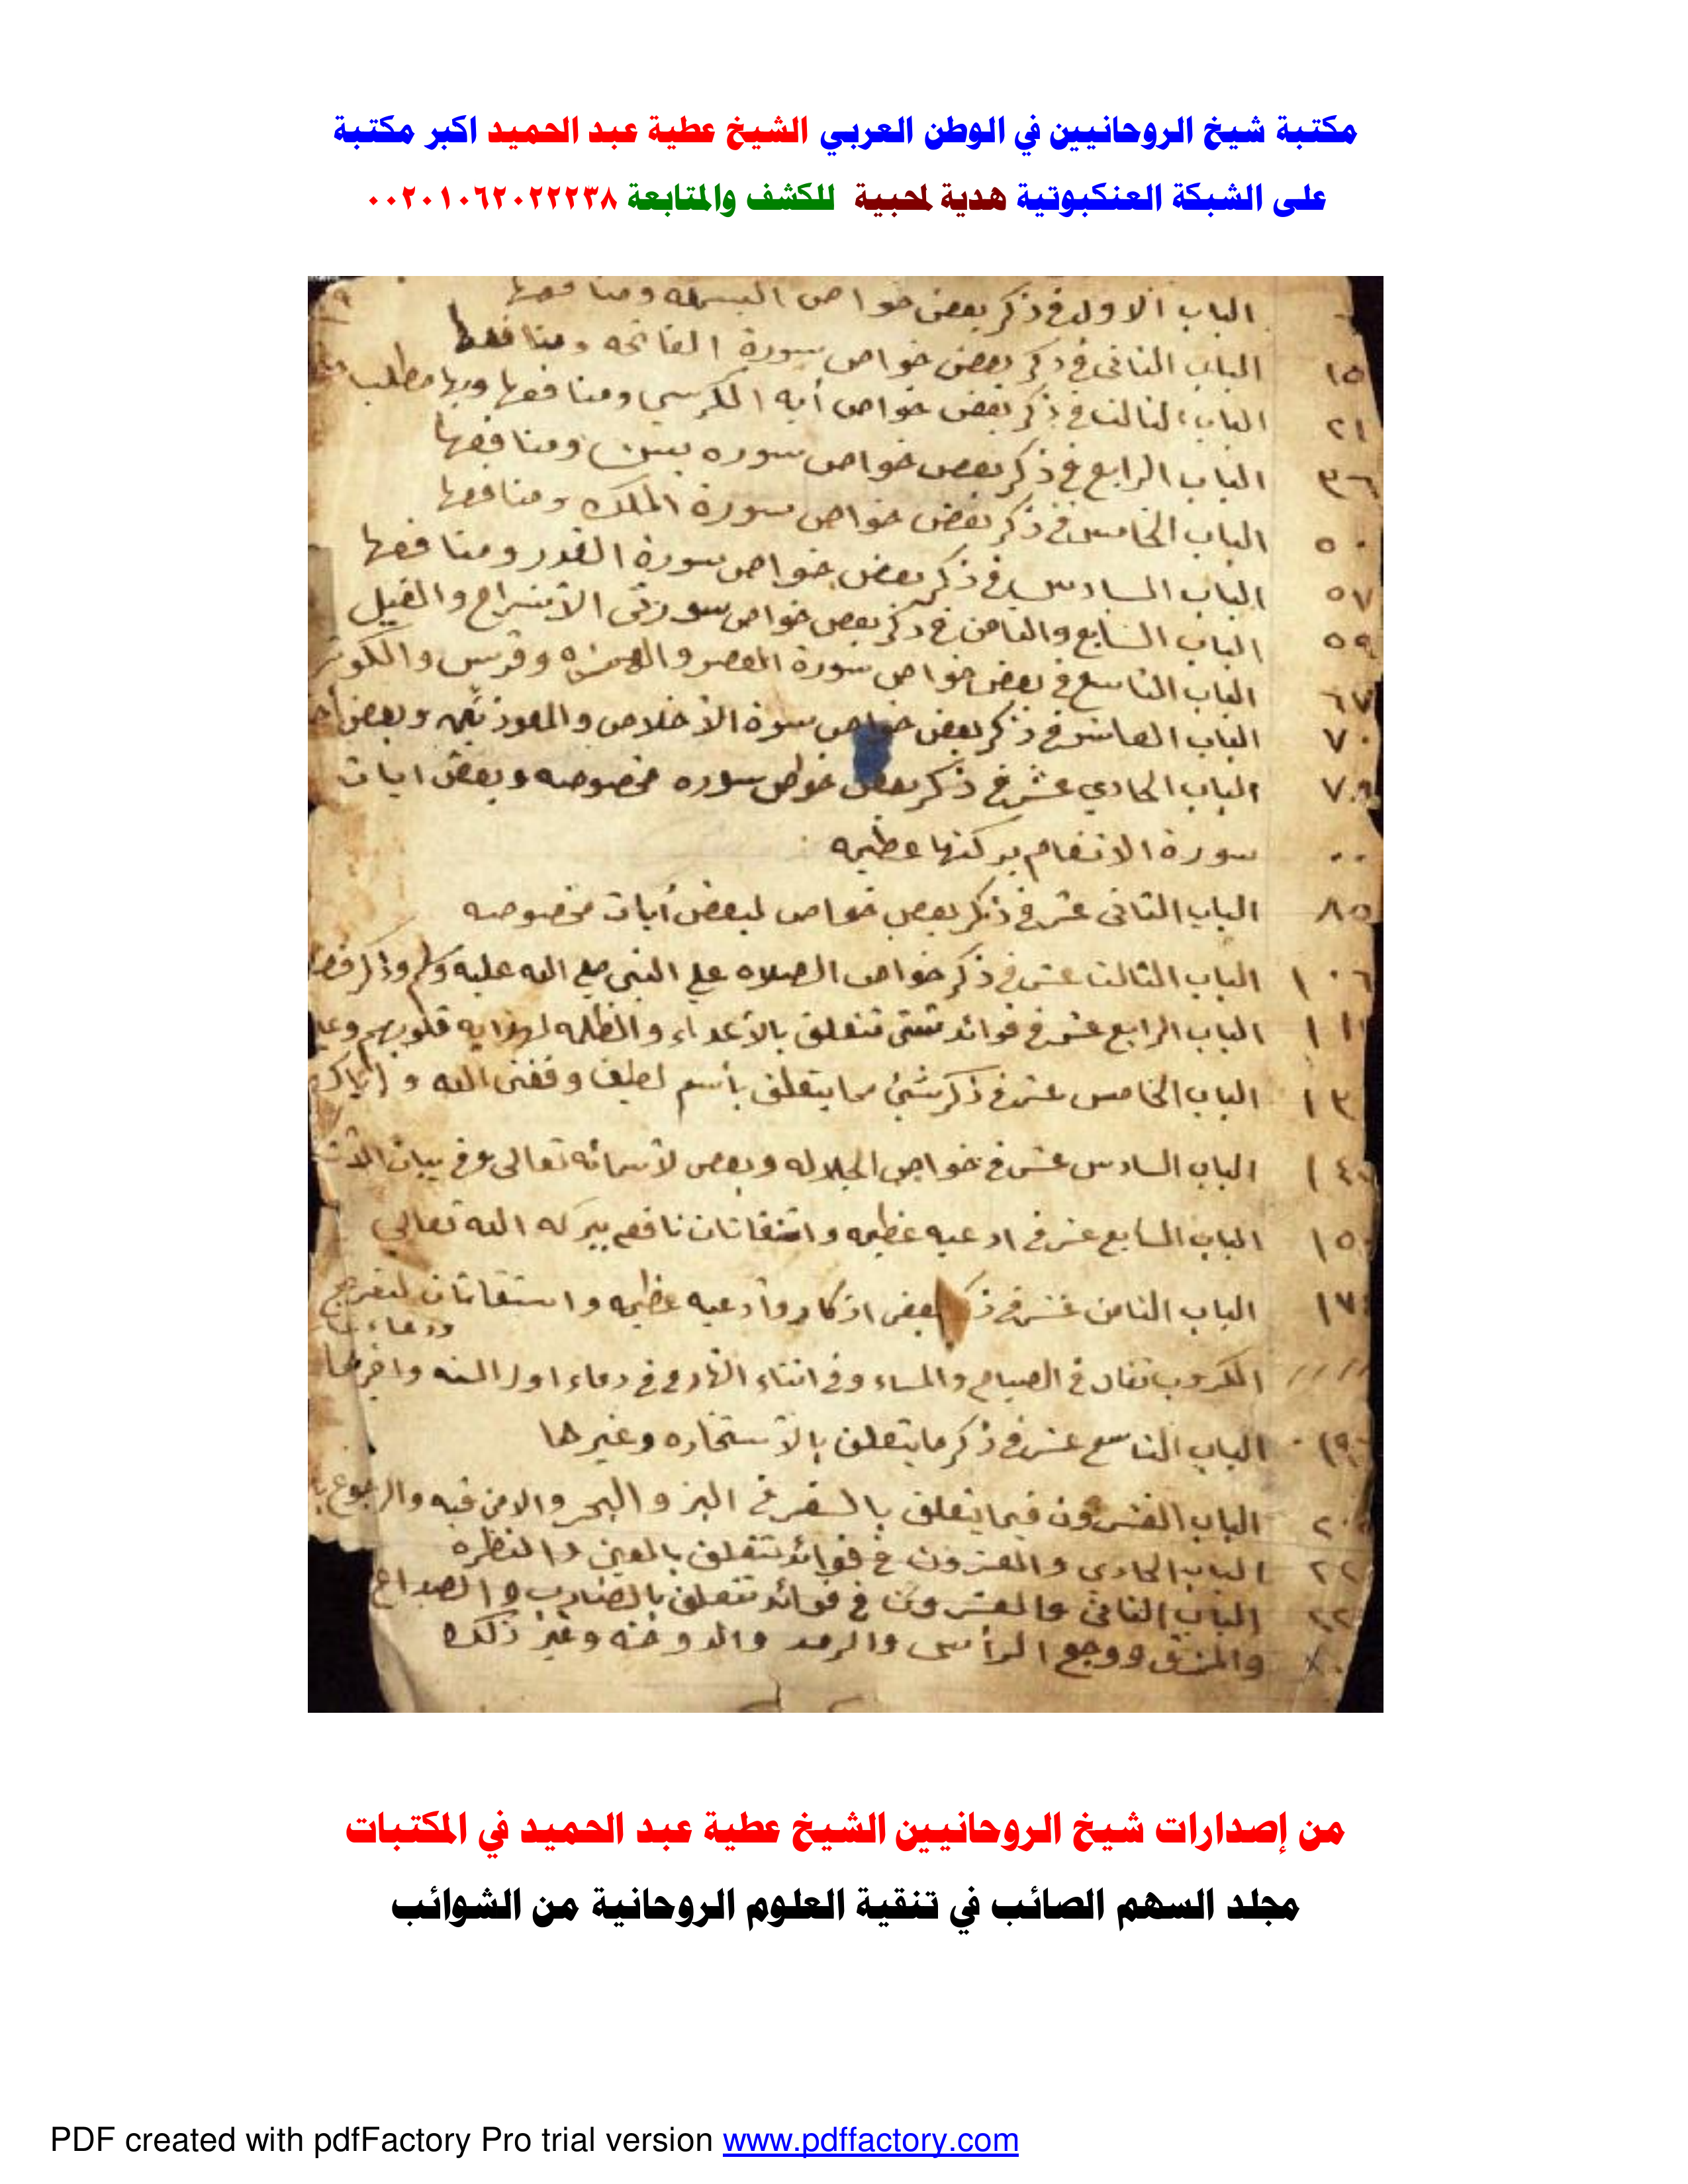 مكتبة شيخ الروحانيين في الوطن العربي الشيخ عطية عبد الحميد اكبر مكتبة
على الشبكة العنكبوتية هدية لمحبية للكشف والمتابعة ٠٠٢٠١٠٦٢٠٢٢٢٣٨
الباب الاول في ذكر بعض خواص البسمله ومنافعها
١٥ الباب الثاني في ذكر بعض خواص سورة الفاتحه ومنافعها
٢١ الباب الثالث في ذكر بعض خواص أيه الكرسي ومنافعها وبها مطلب
٣٦ الباب الرابع في ذكر بعض خواص سوره يس ومنافعها
٥٠ الباب الخامس في ذكر بعض خواص سورة الملك ومنافعها
٥٧ الباب السادس في ذكر بعض خواص سورة القدر ومنافعها
٥٩ الباب السابع والثامن في ذكر بعض خواص سورتى الانشراح والفيل
٦٧ الباب التاسع في بعض خواص سورة العصر والهمزه وقريس والكوثر
٧٠ الباب العاشر في ذكر بعض خواص سورة الاخلاص والمعوذتين وبعض
٧٩ الباب الحادي عشر في ذكر بعض خواص سوره مخصوصه وبعض ايات
سورة الانعام بركتها عظيمه
٨٥ الباب الثاني عشر في ذكر بعض خواص لبعض أيات مخصوصه
١٠٦ الباب الثالث عشر في ذكر خواص الصلاه علي النبي صلي الله عليه وسلم وذكر
١١ الباب الرابع عشر في فوائد شتى تتعلق بالأعداء والظلمه لهدايه قلوبهم
١٣ الباب الخامس عشر في ذكر شئ مما يتعلق بأسم لطيف وفقني الله و اياك
١٤ الباب السادس عشر في خواص الجلاله وبعض لأسمائه تعالى وفي بيان
١٥ الباب السابع عشر في ادعيه عظيمه واستغاثات نافعه ببركه الله تعالي
١٧ الباب الثامن عشر في ذكر بعض اذكار وأدعيه عظيمه واستغاثات لتفريج
الكروب تقال في الصباح والمساء وفي اثناء النهار وفي دعاء اول السنه واخرها
١٩ الباب التاسع عشر في ذكر ما يتعلق بالأستخاره وغيرها
٢٠ الباب العشرون فيما يتعلق بالسفر في البر والبحر والامن فيه والرجوع
٢٢ الباب الحادي والعشرون في فوائد تتعلق بالعين والنظره
٢٢ الباب الثاني والعشرون في فوائد تتعلق والصداع
ووجع الرأس والرمد والدوخه وغير ذلك
من إصدارات شيخ الروحانيين الشيخ عطية عبد الحميد في المكتبات
مجلد السهم الصائب في تنقية العلوم الروحانية من الشوائب
PDF created with pdfFactory Pro trial version www.pdffactory.com